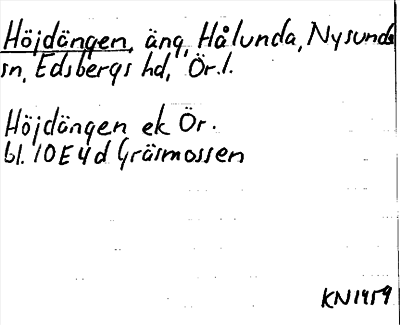 Höjdängen, äng, Hålunda, Nysunda
sn, Edsbergs hd, Ör. l.
Höjdängen ek Ör.
bl. 10E4d Gräsmossen
KN1959